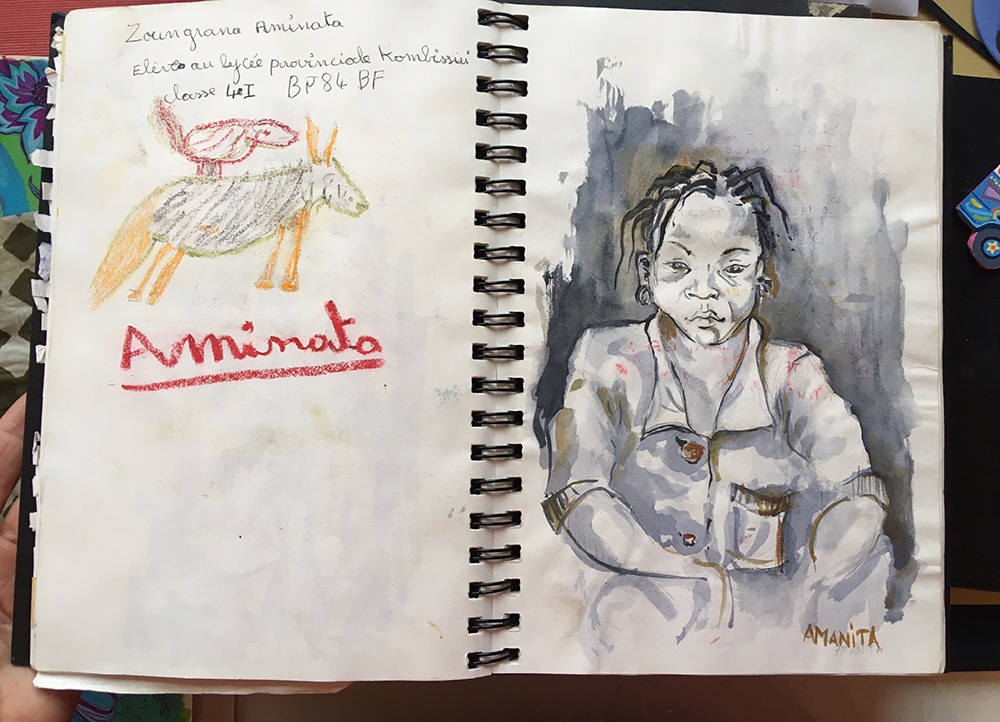 Zoungrana Aminata
Elève au lycée provinciale Kombissiri
classe 4e I BP 84 BF
Aminata
AMANITA